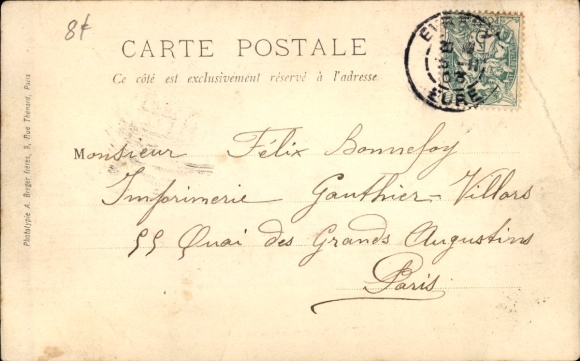 8f
CARTE POSTALE
Ce côté est exclusivement réservé à l'adresse
EURE
Monsieur Félix Bonnefoy
Imprimerie Gauthier-Villars
55 Quai des Grands Augustins
Paris
Phototypie A. Berger frères, 9, Rue Thénard, Paris